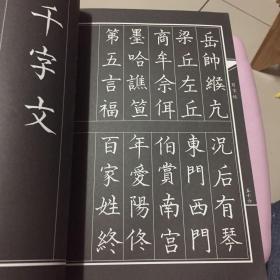 岳帥緱亢況后有琴
梁丘左丘東門西門
商牟佘佴伯賞南宮
墨哈譙笪年愛陽佟
第五言福百家姓終
千字文